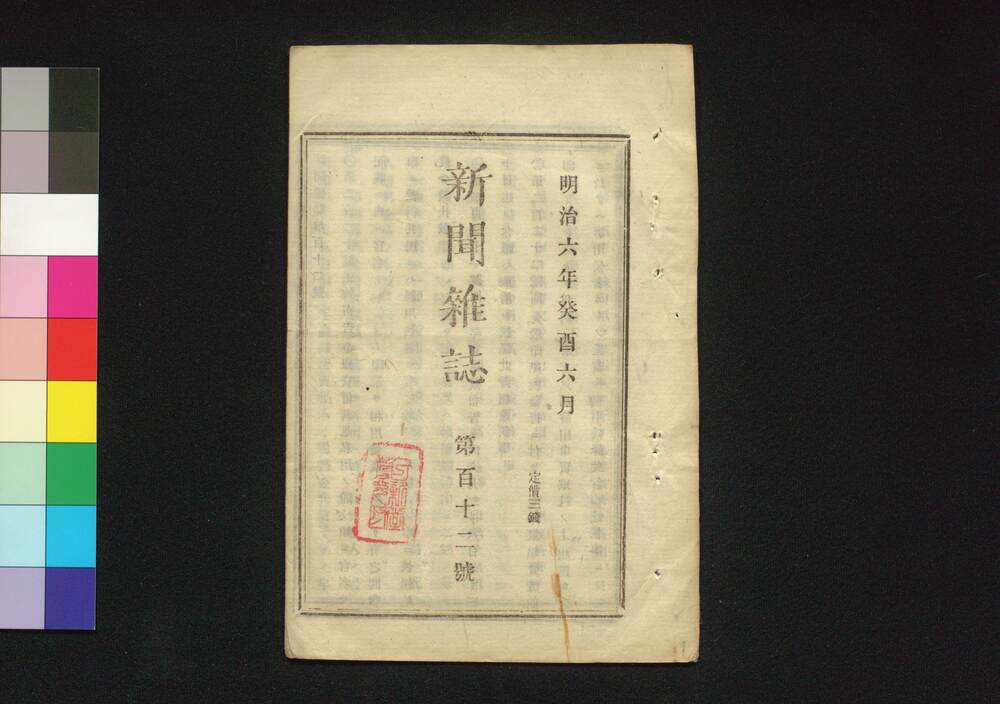 明治六年癸酉六月
定價三錢
新聞雜誌
第百十二號